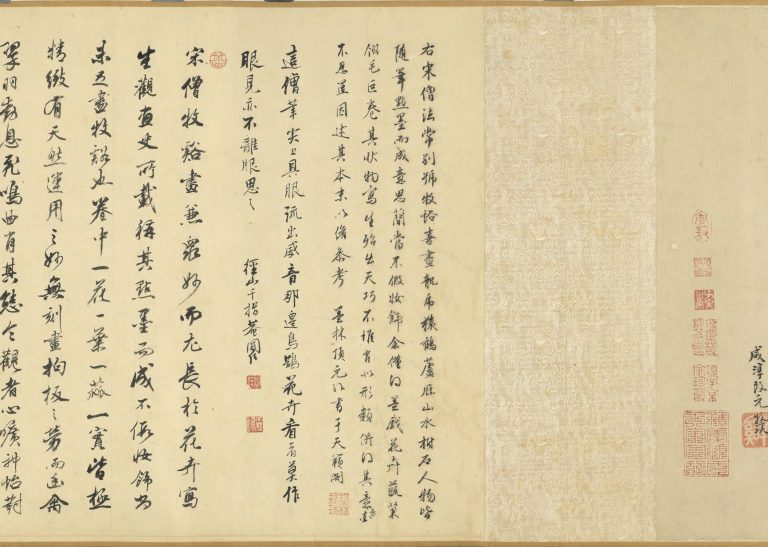 咸淳改元牧谿
右宋僧法常別號牧谿喜畫龍虎猿鶴蘆雁山水樹石人物皆
隨筆點墨而成意思簡當不假妝飾余僅得墨戲花卉蔬菓
翎毛巨卷其狀物寫生殆出天巧不惟肖似形類併得其意
不忍因述其本末以備參考 墨林項元汴書于天籟閣
這僧筆尖上具眼流出威音那邊鳥鵲花卉看看莫作
眼見亦不離眼思之 徑山千指菴圓信
宋僧牧谿畫兼眾妙而尤長於花卉寫
生觀畫史所載稱其點墨而成不假妝飾尚
未足盡牧谿也卷中一花一葉一蓏一實皆極
精緻有天然運用之妙無刻畫拘板之勞而至禽
翠羽息飛鳴曲肖其態令觀者心曠神怡對